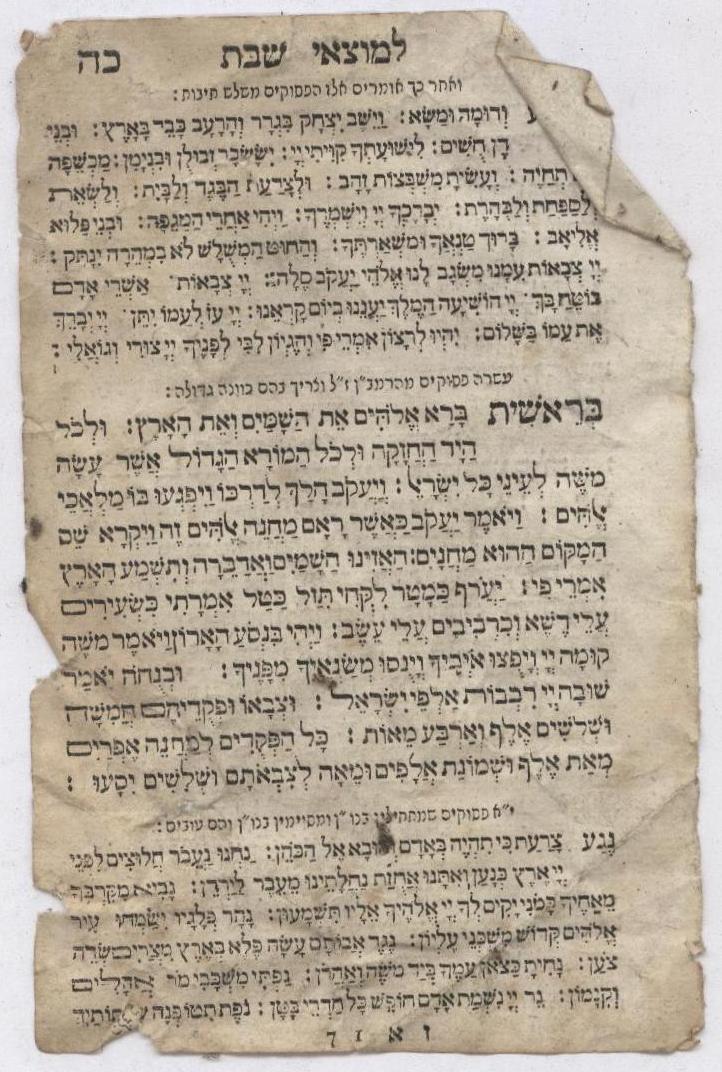 למוצאי שבת כה
ואחר כך אומרים אלו הפסוקים משלש תיבות:
וְדוּמָה וּמַשָּׂא: וַיֵּשֶׁב יִצְחָק בִּגְרָר וְהָרָעָב כָּבֵד בָּאָרֶץ: וּבְנֵי
דָן חֻשִׁים: לִישׁוּעָתְךָ קִוִּיתִי יְיָ: יִשָּׂשכָר זְבוּלֻן וּבִנְיָמִן: מְכַשֵּׁפָה
תְחַיֶּה: וְעָשִׂיתָ מִשְׁבְּצוֹת זָהָב: וּלְצָרַעַת הַבֶּגֶד וְלַבָּיִת: וְלַשְׂאֵת
וְלַסַּפַּחַת וְלַבֶּהָרֶת: יְבָרֶכְךָ יְיָ וְיִשְׁמְרֶךָ: וַיְהִי אַחֲרֵי הַמַּגֵּפָה: וּבְנֵי פַלּוּא
אֱלִיאָב: בָּרוּךְ טַנְאֲךָ וּמִשְׁאַרְתֶּךָ: וְהַחוּט הַמְשֻׁלָּשׁ לֹא בִמְהֵרָה יִנָּתֵק:
יְיָ צְבָאוֹת עִמָּנוּ מִשְׂגָּב לָנוּ אֱלֹהֵי יַעֲקֹב סֶלָה: יְיָ צְבָאוֹת אַשְׁרֵי אָדָם
בּוֹטֵחַ בָּךְ יְיָ הוֹשִׁיעָה הַמֶּלֶךְ יַעֲנֵנוּ בְיוֹם קָרְאֵנוּ: יְיָ עֹז לְעַמּוֹ יִתֵּן יְיָ יְבָרֵךְ
אֶת עַמּוֹ בַשָּׁלוֹם: יִהְיוּ לְרָצוֹן אִמְרֵי פִי וְהֶגְיוֹן לִבִּי לְפָנֶיךָ יְיָ צוּרִי וְגוֹאֲלִי:
עשרה פסוקים מהרמב"ן ז"ל וצריך בהם כוונה גדולה:
בְּרֵאשִׁית בָּרָא אֱלֹהִים אֵת הַשָּׁמַיִם וְאֵת הָאָרֶץ: וּלְכֹל
הַיָּד הַחֲזָקָה וּלְכֹל הַמּוֹרָא הַגָּדוֹל אֲשֶׁר עָשָׂה
מֹשֶׁה לְעֵינֵי כָּל יִשְׂרָאֵל: וְיַעֲקֹב הָלַךְ לְדַרְכּוֹ וַיִּפְגְּעוּ בוֹ מַלְאֲכֵי
אֱלֹהִים: וַיֹּאמֶר יַעֲקֹב כַּאֲשֶׁר רָאָם מַחֲנֵה אֱלֹהִים זֶה וַיִּקְרָא שֵׁם
הַמָּקוֹם הַהוּא מַחֲנָיִם: הַאֲזִינוּ הַשָּׁמַיִם וַאֲדַבֵּרָה וְתִשְׁמַע הָאָרֶץ
אִמְרֵי פִי: יַעֲרֹף כַּמָּטָר לִקְחִי תִּזַּל כַּטַּל אִמְרָתִי כִּשְׂעִירִים
עֲלֵי דֶשֶׁא וְכִרְבִיבִים עֲלֵי עֵשֶׂב: וַיְהִי בִּנְסֹעַ הָאָרוֹן וַיֹּאמֶר מֹשֶׁה
קוּמָה יְיָ וְיָפֻצוּ אוֹיְבֶיךָ וְיָנֻסוּ מְשַׂנְאֶיךָ מִפָּנֶיךָ: וּבְנֻחֹה יֹאמַר
שׁוּבָה יְיָ רִבְבוֹת אַלְפֵי יִשְׂרָאֵל: וּצְבָאוֹ וּפְקֻדֵיהֶם חֲמִשָּׁה
וּשְׁלֹשִׁים אֶלֶף וְאַרְבַּע מֵאוֹת: כָּל הַפְּקֻדִים לְמַחֲנֵה אֶפְרַיִם
מְאַת אֶלֶף וּשְׁמוֹנַת אֲלָפִים וּמֵאָה לְצִבְאֹתָם וּשְׁלִשִׁים יִסָּעוּ:
י"א פסוקים שמתחילין בנו"ן ומסיימין בנו"ן והם טובים:
נֶגַע צָרַעַת כִּי תִהְיֶה בְּאָדָם וְהוּבָא אֶל הַכֹּהֵן: נַחְנוּ נַעֲבֹר חֲלוּצִים לִפְנֵי
יְיָ אֶרֶץ כְּנָעַן וְאִתָּנוּ אֲחֻזַּת נַחֲלָתֵינוּ מֵעֵבֶר לַיַּרְדֵּן: נָבִיא מִקִּרְבְּךָ
מֵאַחֶיךָ כָּמֹנִי יָקִים לְךָ יְיָ אֱלֹהֶיךָ אֵלָיו תִּשְׁמָעוּן: נָהָר פְּלָגָיו יְשַׂמְּחוּ עִיר
אֱלֹהִים קְדוֹשׁ מִשְׁכְּנֵי עֶלְיוֹן: נֶגֶד אֲבוֹתָם עָשָׂה פֶלֶא בְּאֶרֶץ מִצְרַיִם שְׂדֵה
צֹעַן: נָחִיתָ כַצֹּאן עַמֶּךָ בְּיַד מֹשֶׁה וְאַהֲרֹן: נַפְתִּי מִשְׁכָּבִי מֹר אֲהָלִים
וְקִנָּמוֹן: נֵר יְיָ נִשְׁמַת אָדָם חוֹפֵשׂ כָּל חַדְרֵי בָטֶן: נֹפֶת תִּטּוֹפְנָה שִׂפְתוֹתַיִךְ
ז א ו ד